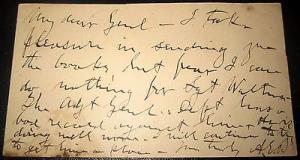 My dear Genl — I take
pleasure in sending you
the books but fear I can
do nothing for Sgt
The Adjt Genl. Dept has a
bad record against him
doing well now — will continue to
him a place — Yrs truly